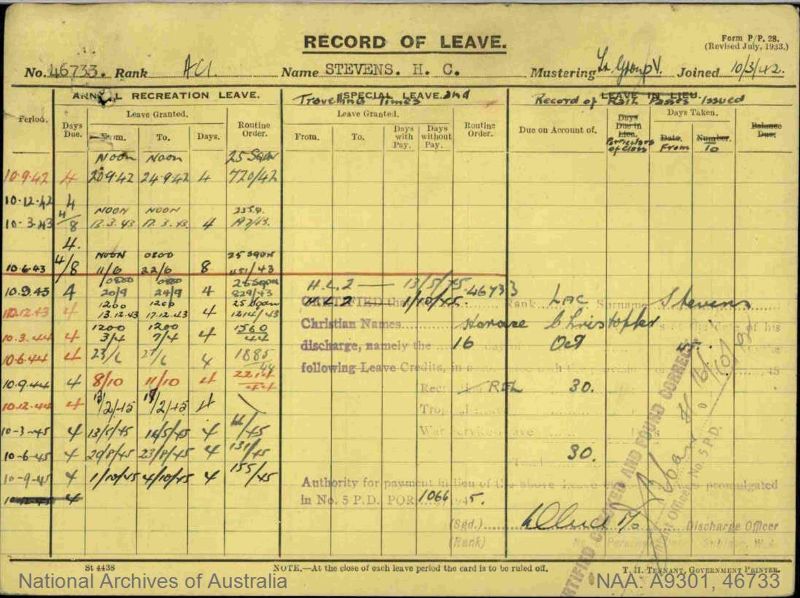 RECORD OF LEAVE.
Form P/P. 28.
(Revised July, 1933.)
No. 46733. Rank AC1. Name STEVENS. H. C. Mustering Joined 10/3/42
ANNUAL RECREATION LEAVE.
Travelling Times and
SPECIAL LEAVE.
Record of Rail Passes Issued
LEAVE IN LIEU.
Period. Days Due. Leave Granted. Routine Order.
From. To. Days.
Leave Granted. Routine Order.
From. To. Days with Pay. Days without Pay.
Due on Account of. Days Due in Lieu. Days Taken. Balance Due.
Particulars of Class Date. Number.
From To
NOON NOON 25 Sqdn
10.9.42 4 20.9.42 24.9.42 4 720/42
10.12.42 4
NOON NOON
10.3.43 4/8 13.3.43 17.3.43 4
4.
NOON 0800 25 SQDN
10.6.43 4/8 11/6 22/6 8 451/43
0800 0800 25 Sqdn
10.9.43 4 20/9 24/9 4 829/43
1200 1200 25 Sqdn
10.12.43 4 13.12.43 17.12.43 4
1200 1200 1560
10.3.44 4 3/4 7/4 4 44
10.6.44 4 23/6 27/6 4 1885
44
10.9.44 4 8/10 11/10 4
44
10.12.44 4 4
10-3-45 4 13/5/45 16/5/45 4
10-6-45 4 20/8/45 23/8/45 4 131/45
10-9-45 4 1/10/45 4/10/45 4 155/45
10-12-45 4
H.L.2 — 13/5/45
H.L.2 1/10/45.
CERTIFIED the 46733 Rank LAC Surname Stevens
Christian Names Horace Christopher of his
discharge, namely the 16 Oct
following Leave Credits, in
Rec REL 30.
War Service Leave
Total 30.
Authority for payment in lieu of the above leave promulgated
in No. 5 P.D. POR 1066/45.
(Sgd.) F/O Discharge Officer
(Rank)
CERTIFIED CHECKED AND FOUND CORRECT
No. 5 P.D.
St 4438
NOTE.—At the close of each leave period the card is to be ruled off.
T. H. TENNANT, GOVERNMENT PRINTER.
National Archives of Australia
NAA: A9301, 46733